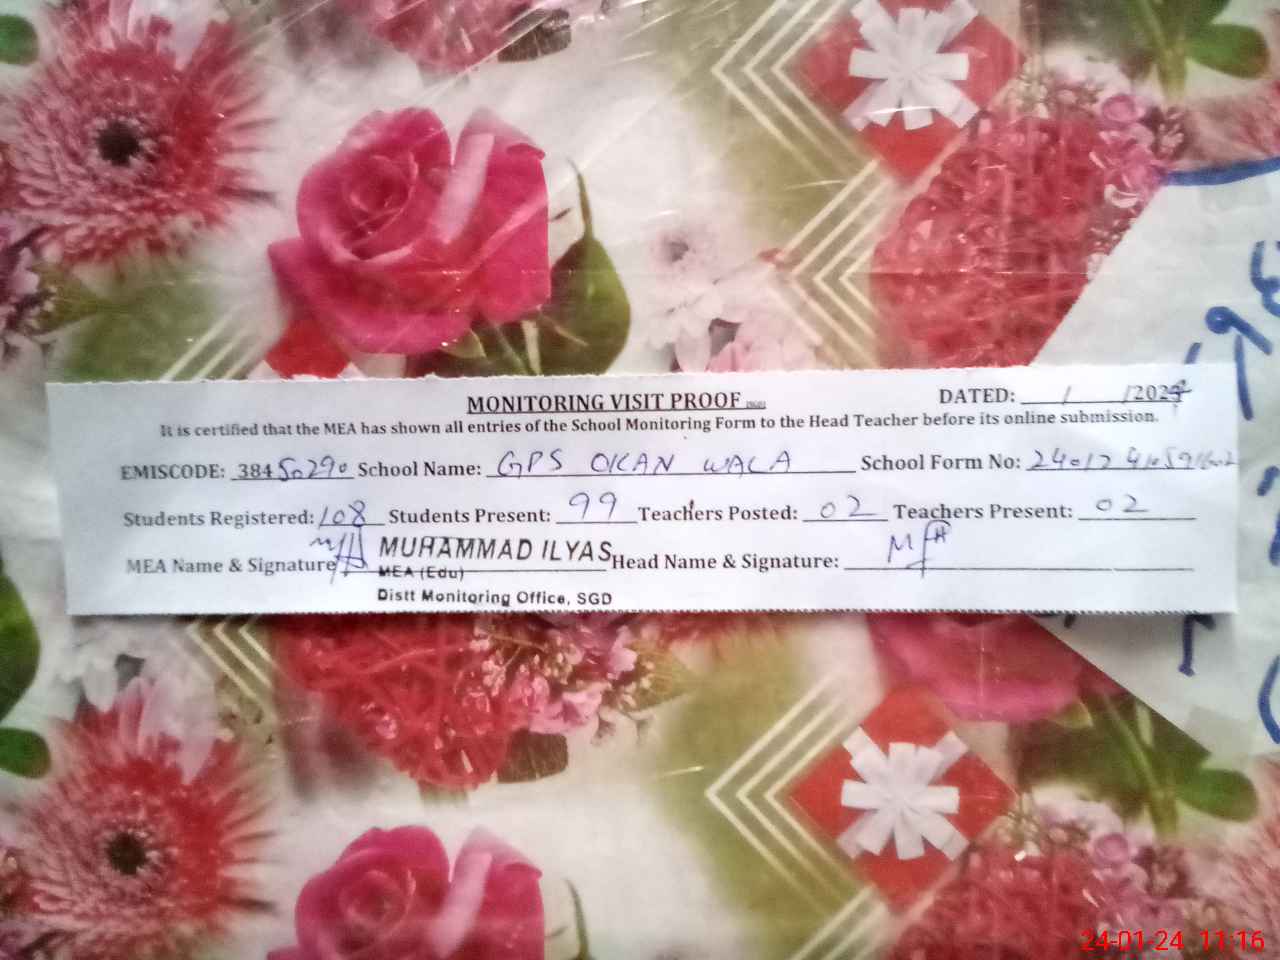 MONITORING VISIT PROOF
DATED: / /2024
It is certified that the MEA has shown all entries of the School Monitoring Form to the Head Teacher before its online submission.
EMISCODE: 38450290 School Name: GPS OKAN WALA School Form No:
Students Registered: 108 Students Present: 99 Teachers Posted: 02 Teachers Present: 02
MEA Name & Signature MUHAMMAD ILYAS Head Name & Signature:
MEA (Edu)
Distt Monitoring Office, SGD
24-01-24 11:16